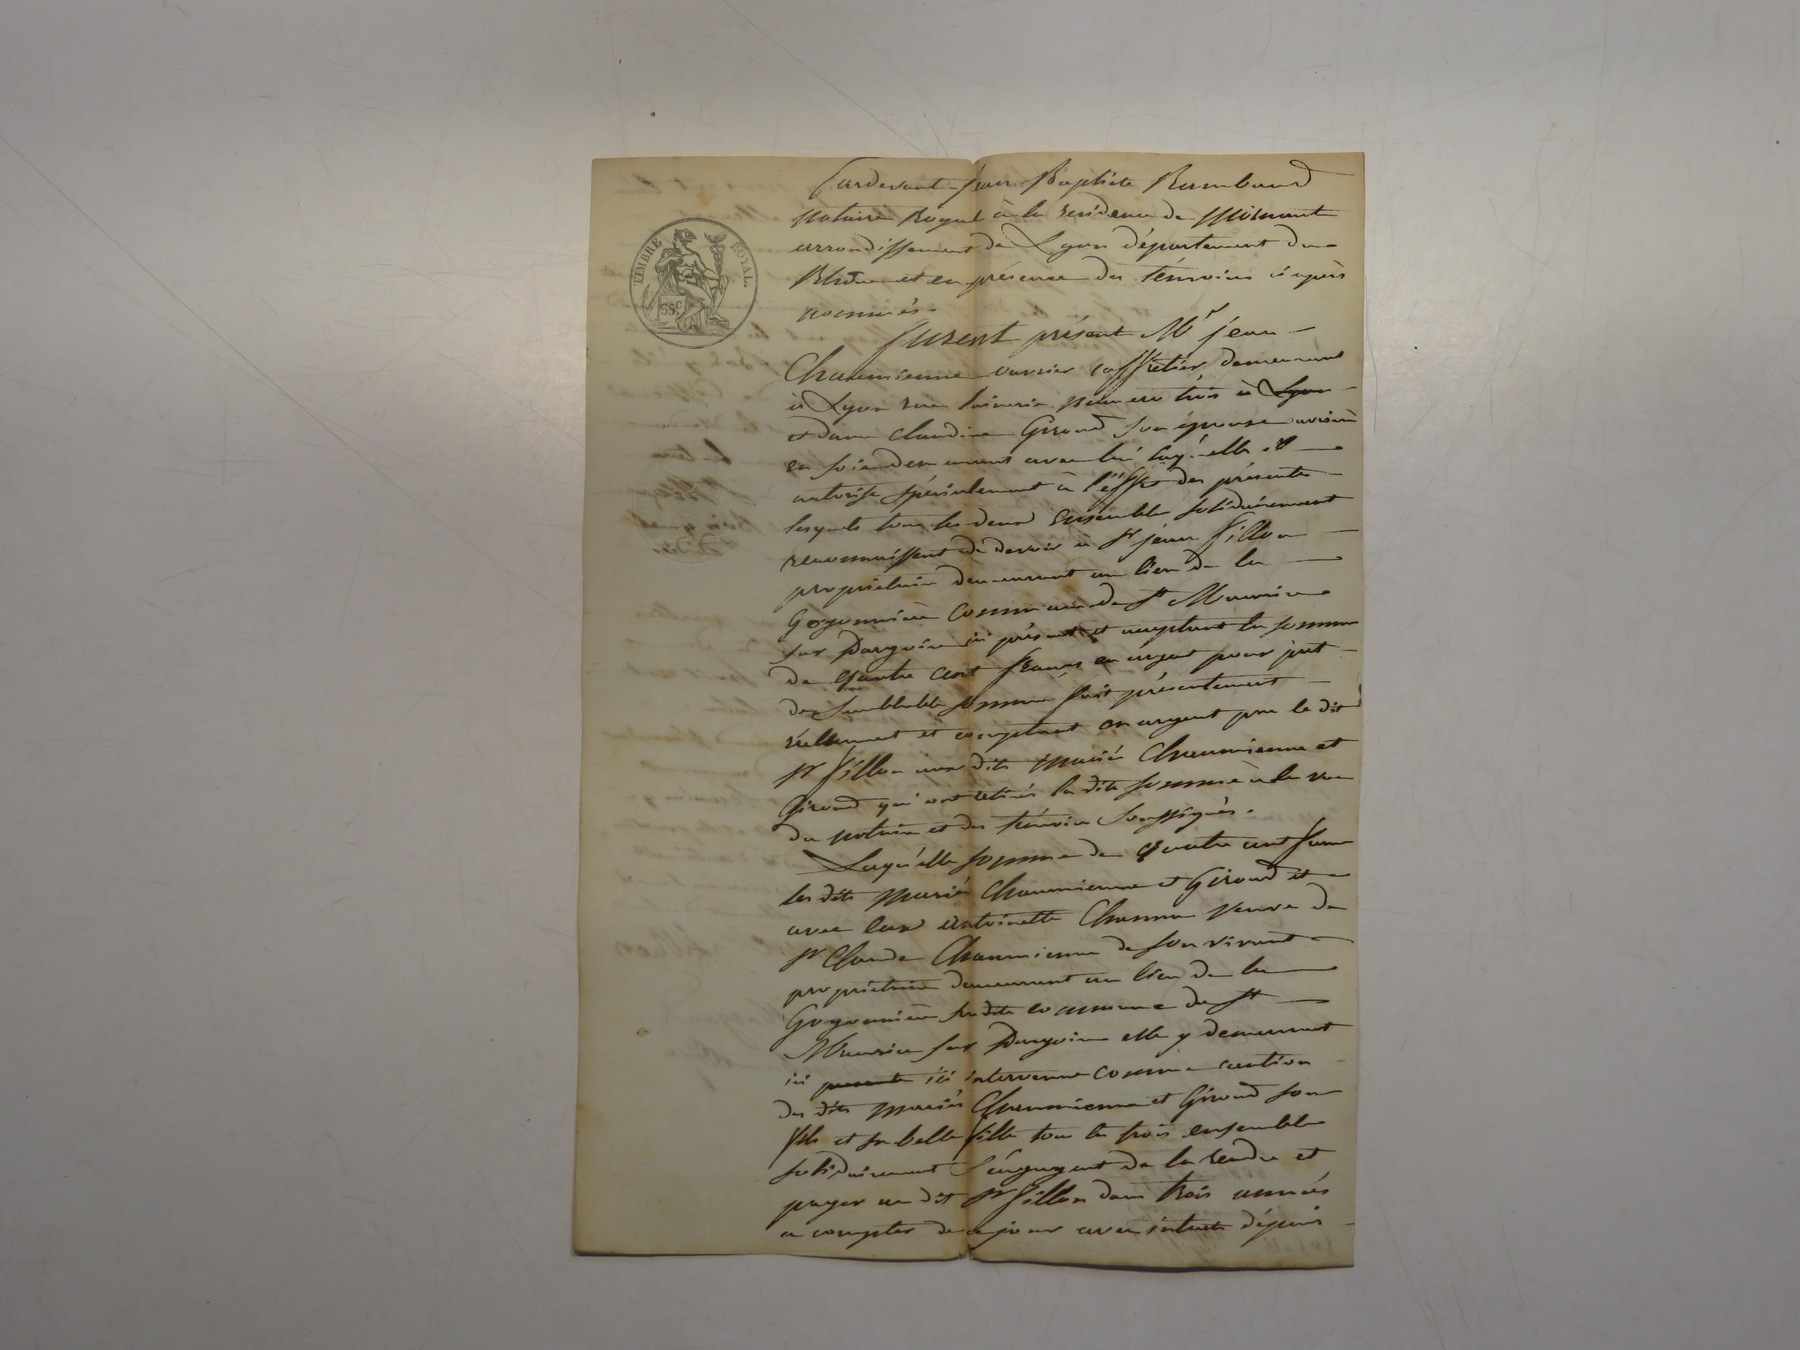 TIMBRE ROYAL.
35c
Pardevant Jean Baptiste Rambaud
Notaire Royal à la résidence de Mornant
arrondissement de Lyon département du
Rhône et en présence des témoins ci après
nommés.
furent présent Mr jean
Chaumienne ouvrier coffretier demeurant
à Lyon rue numero trois à Lyon
et dame Claudine Giroud son épouse ouvrière
en soie demeurant avec lui laquelle il
autorise spécialement à l'éffet des présente
lesquels tous les deux ensemble solidairement
reconnaissent de devoir à Sr jean fillon
propriétaire demeurant au lieu de la
Goyonnière commune de St Maurice
sur Dargoire ici présent et acceptant la somme
de quatre cent francs en argent pour prêt
de semblable somme fait présentement
réellement et comptant en argent par le dit
Sr fillon aux dits mariés Chaumienne et
Giroud qui ont retirés la dite somme à la vue
du notaire et des témoins soussignés.
Laqu'elle somme de quatre cent franc
les dits mariés Chaumienne et Giroud et
avec eux antoinette veuve de
Sr Claude Chaumienne de son vivant
propriétaire demeurant au lieu de la
Goyonnière susdite commune de St
Maurice sur Dargoire elle y demeurant
ici presente ici intervenue comme caution
des dits mariés Chaumienne et Giroud son
fils et sa belle fille tou les trois ensemble
solidairement s'engagent de la rendre et
payer au dit Sr fillon dans trois années
a compter de ce jour avec intérêt dépuis